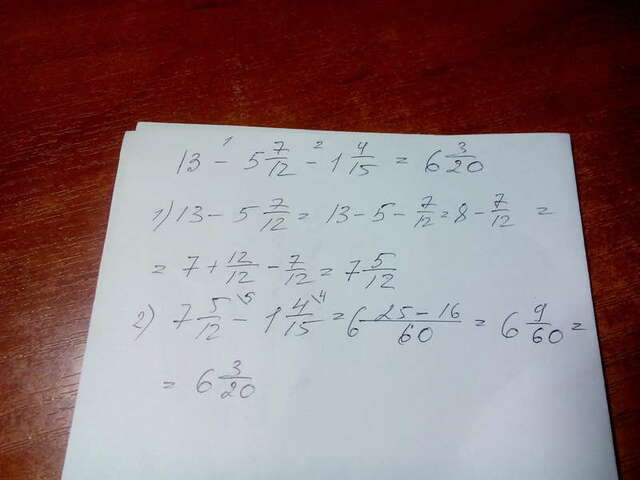 13 - 5 7/12 - 1 4/15 = 6 3/20
1) 13 - 5 7/12 = 13 - 5 - 7/12 = 8 - 7/12 =
= 7 + 12/12 - 7/12 = 7 5/12
2) 7 5/12 \5 - 1 4/15 \4 = 6 25-16/60 = 6 9/60 =
= 6 3/20